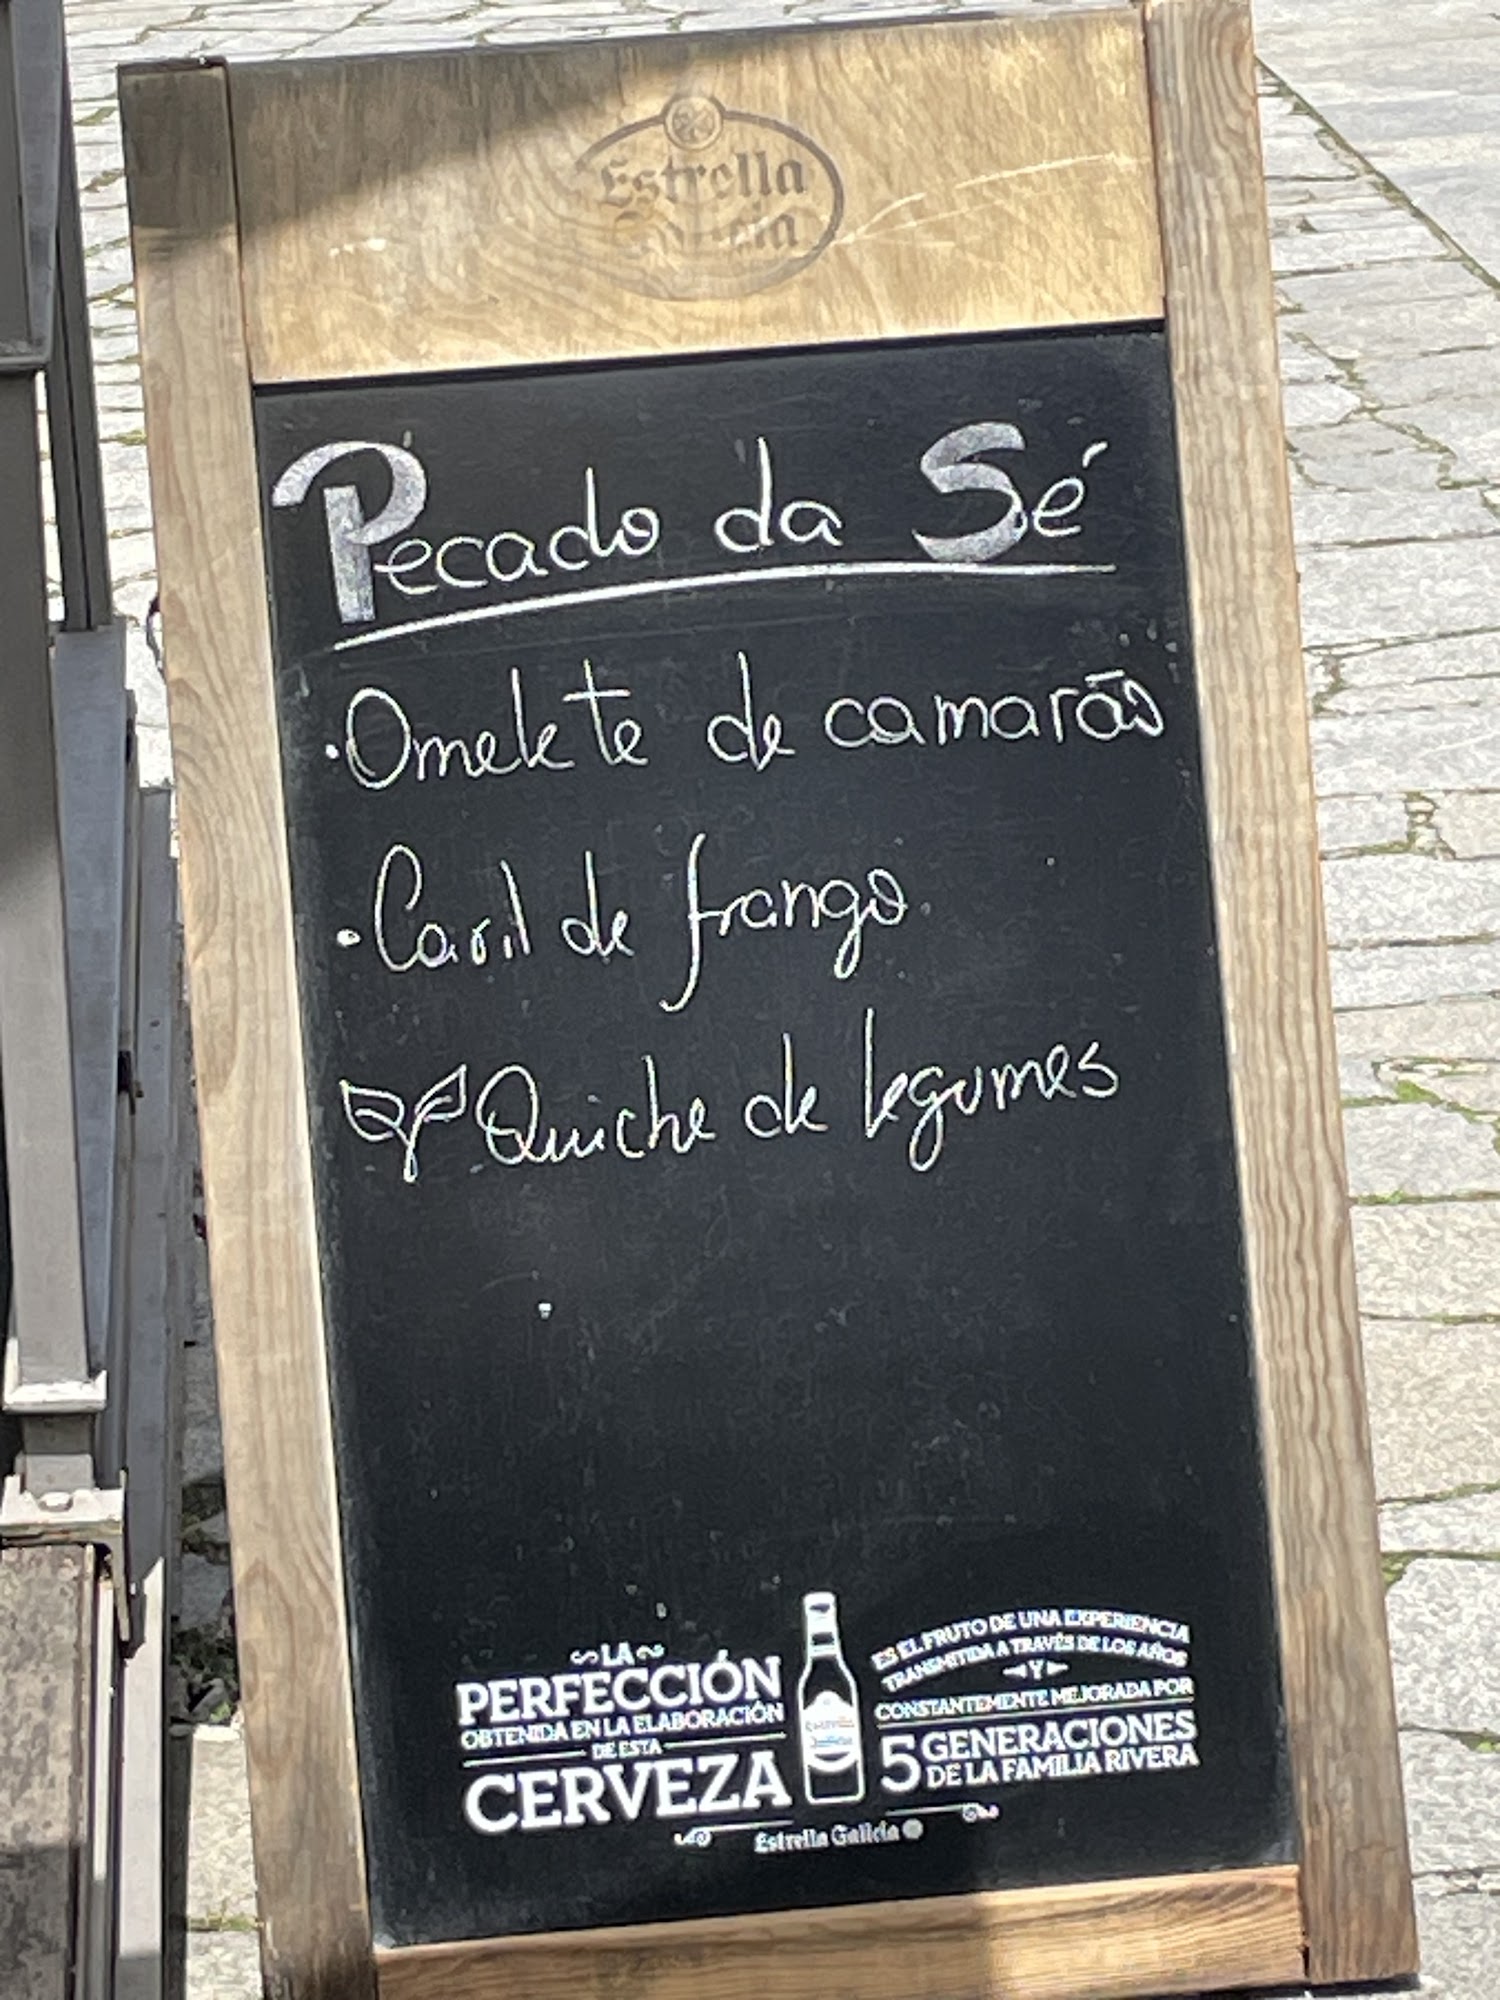 Estrella
Galicia
Pecado da Sé
·Omelete de camarão
·Caril de frango
Quiche de legumes
LA
PERFECCIÓN
OBTENIDA EN LA ELABORACIÓN
DE ESTA
CERVEZA
ES EL FRUTO DE UNA EXPERIENCIA
TRANSMITIDA A TRAVÉS DE LOS AÑOS
Y
CONSTANTEMENTE MEJORADA POR
5 GENERACIONES
DE LA FAMILIA RIVERA
Estrella Galicia